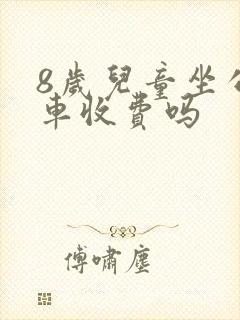 8歲兒童坐公
車收費吗
傅嘯塵